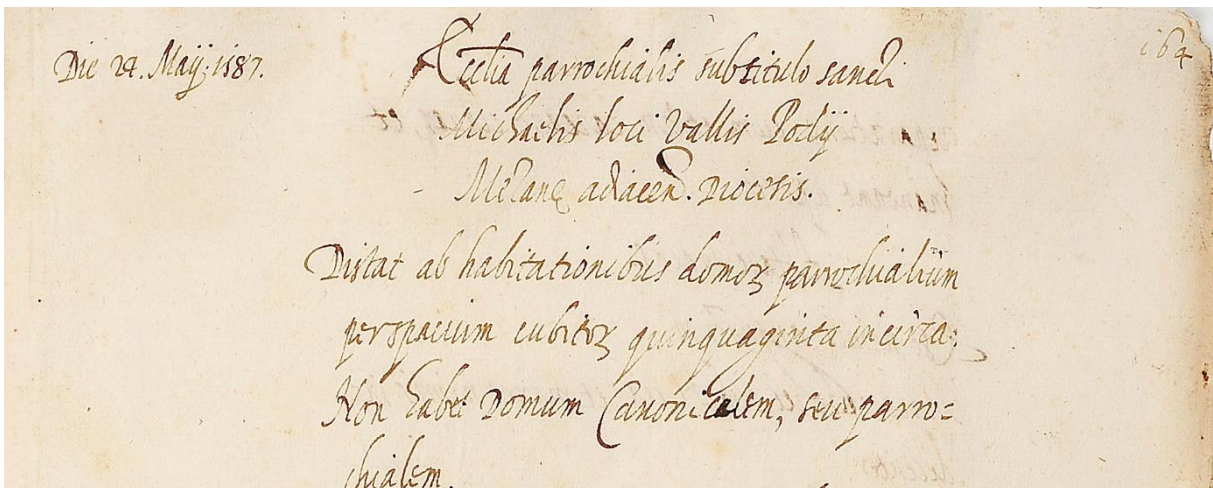 Die 24. Maij 1587.
164
Ecclia parrochialis subtitulo sancti
Michaelis loci Vallis Podij
adiacen. Diocesis.
Distat ab habitationibus domoꝝ parrochialium
perspacium cubitoꝝ quinquaginta incirca.
Non habet Domum Canonicalem, seu parro=
chialem.